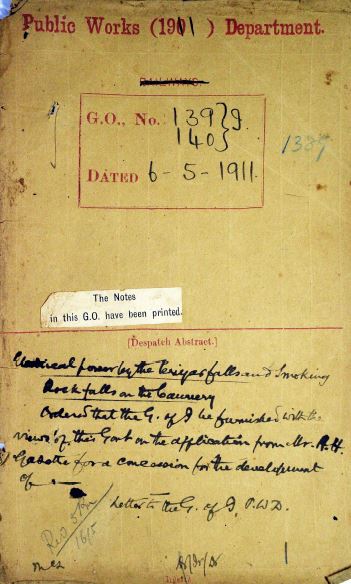 Public Works (1911) Department.
RAILWAYS.
G.O., No. 139} I.
140}
1389
DATED 6-5-1911.
The Notes
in this G.O. have been printed.
[Despatch Abstract.]
Electrical power by the falls and Smoking
Rock falls on the Cauvery
Ordered that the G. of I be furnished with the
views of this Govt on the application from Mr.
for a concession for the development
of
Letter to the G. of I, P.W.D.
16/5